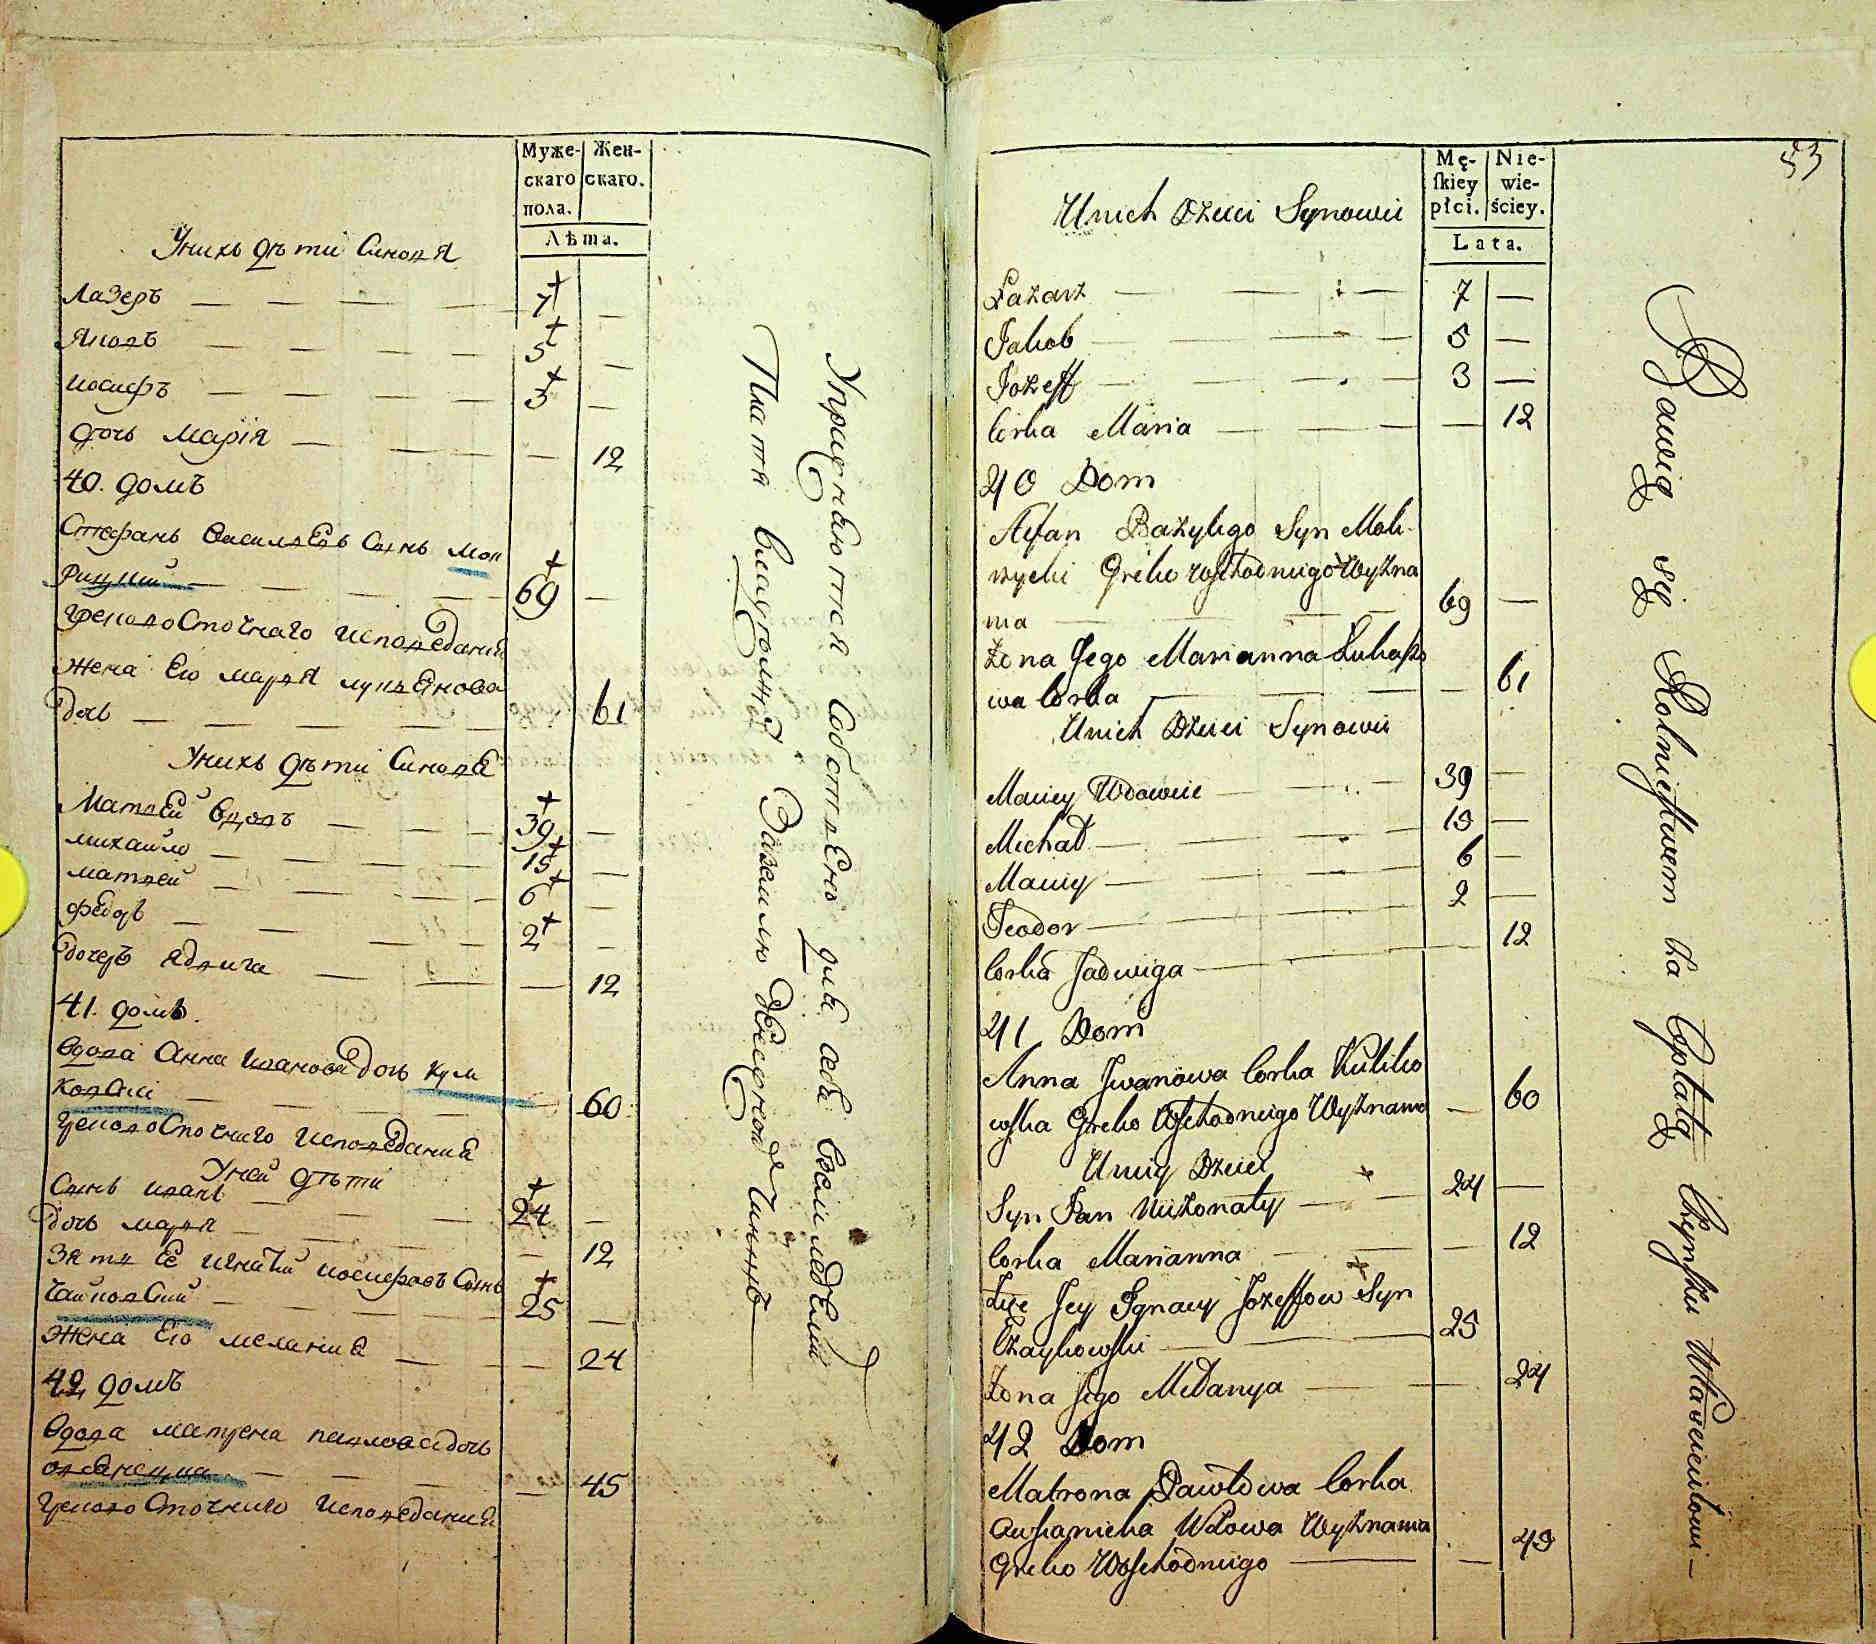 Муже-
скаго
пола.
Жен-
скаго.
Лѣта.
Унихъ дѣти Синовя
Лазеръ 7
Яковъ 5
иосифъ 3
дочь Марія 12
40. домъ
Стефанъ Василѣевъ Сынъ Мок
рицкий 69
грековосточнаго исповедания
жена Его маря лукяновa
дочь 61
Унихъ дѣти Синове
Матвей вдовъ 39
михайло 15
матвей 6
федоръ 2
дочеръ ядвига 12
41. домъ.
вдова Анна Иванова дочь кули
ковская 60
грековосточнаго исповедания
Уней дѣти
Сынъ иванъ 24
дочь маря 12
Зять Ее игнатий иосифовъ Сынъ
Чайковский 25
жена Его мелания 24
42 домъ
вдова матрена павлова дочь
45
грековосточнаго исповедания
Упражняются
для себя
Платя
53
Unich Dzieci Synowie
Mę-
ſkiey
płci.
Nie-
wie-
ściey.
Lata.
Łazarz 7
Jakob 5
Jozeff 3
Corka Maria 12
40 Dom
Stefan Bazylego Syn Mok-
rycki Greko Wschodniego Wyzna
nia 69
Zona Jego Marianna Łukaszo
wa Corka 61
Unich Dzieci Synowie
Maciey Wdowiec 39
Michał 15
Maciey 6
Teodor 2
Corka Jadwiga 12
41 Dom
Anna Jwanowa Corka Kuliko
wska Greko Wschodniego Wyznania 60
Uniey Dzieci
Syn Jan Nieżonaty 24
Corka Marianna 12
Zięć Jey Ignacy Jozeffow Syn
Czaykowski 25
Zona Jego Mełanya 24
42 Dom
Matrona Pawłowa Corka
Wdowa Wyznania
Greko Wschodniego 45
Bawią się Rolnictwem za Opłatą Czynszu Właścicielowi